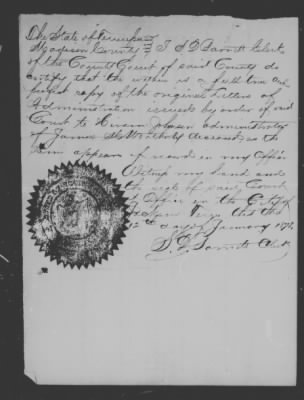 The State of Tennessee
Madison County I S D Barnett Clerk
of the County Court of said County do
certify that the within is a full true
perfect copy of the original Letters of
Administration issued by order of said
Court to Hiram Johnson administrator
of James deceased, as the
same appears of record in my office
Witness my hand and
the seal of said Court
at Office in the City of
Jackson Tenn this the
12th day of January 187
S D Barnett Clk